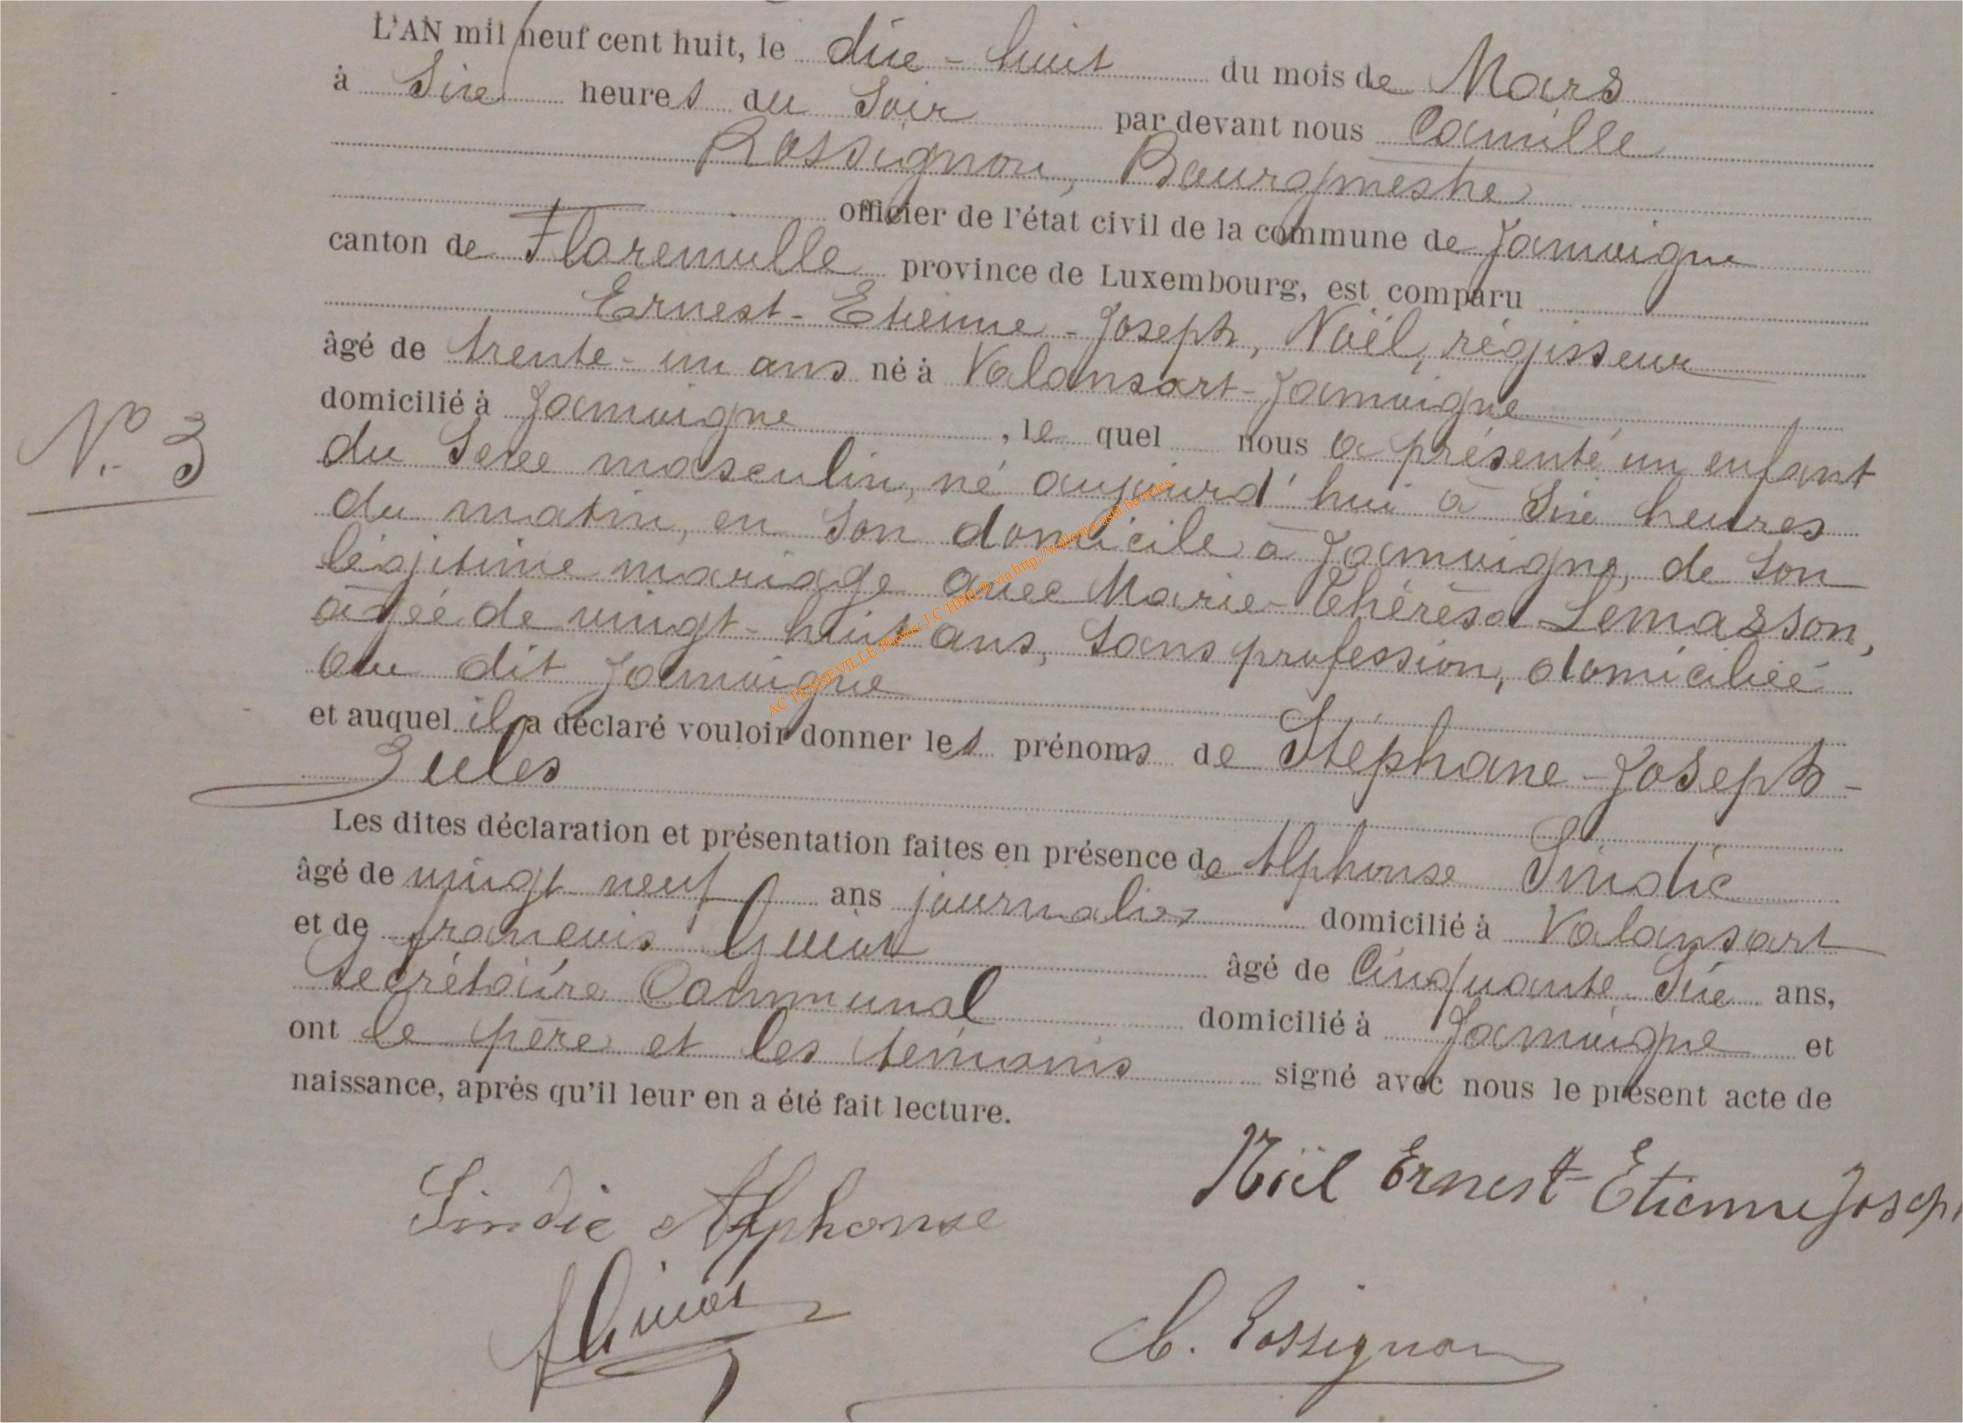 L'AN mil neuf cent huit, le dix-huit du mois de Mars
à Six heures du Soir par devant nous Camille
Rossignon, Bourgmestre
officier de l'état civil de la commune de Jamoigne
canton de Florenville province de Luxembourg, est comparu
Ernest-Etienne-Joseph, Noël, régisseur
âgé de trente-un ans né à Valansart-Jamoigne
domicilié à Jamoigne, le quel nous a présenté un enfant
N° 3
du Sexe masculin, né aujourd'hui à Six heures
du matin, en Son domicile à Jamoigne, de Son
légitime mariage avec Marie-Thérèse Lemasson,
âgée de vingt-huit ans, Sans profession, domiciliée
au dit Jamoigne
et auquel il a déclaré vouloir donner les prénoms de Stéphane-Joseph-
Jules
Les dites déclaration et présentation faites en présence de Alphonse Sindic
âgé de vingt neuf ans journalier domicilié à Valansart
et de françois Guiot âgé de Cinquante Six ans,
Secrétaire Communal domicilié à Jamoigne et
ont le père et les témoins signé avec nous le présent acte de
naissance, après qu'il leur en a été fait lecture.
Sindic Alphonse
Noël Ernest Etienne Joseph
C. Rossignon